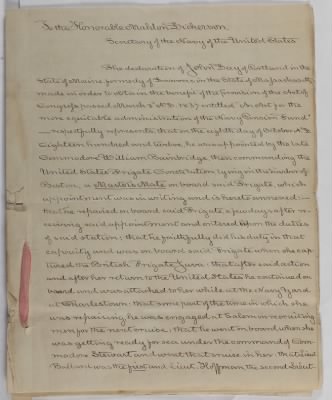 To the Honorable Mahlon Dickerson
Secretary of the Navy of the United States
The declaration of John Day of Portland in the
State of Maine, formerly of in the State of Massachusetts
made in order to obtain the benefit of the provision of the Act of
Congress passed March 3d A.D. 1837 entitled "An Act for the
more equitable administration of the Navy Pension Fund"
—respectfully represents that on the eighth day of October A.D.
Eighteen hundred and twelve, he was appointed by the late
Commodore William Bainbridge then commanding the
United States Frigate Constitution lying in the harbor of
Boston, a Master's Mate on board said Frigate, which
appointment was in writing and is hereto annexed:—
that he repaired on board said Frigate a few days after re-
ceiving said appointment and entered upon the duties
of said station; that he faithfully did his duty in that
capacity and was on board said Frigate when she cap-
tured the British Frigate Java: that after said action
and after her return to the United States he continued on
board and was attached to her while at the Navy Yard
at Charlestown: that some part of the time in which she
was repairing he was engaged at Salem in recruiting
men for the next cruise, that he went on board when she
was getting ready for sea under the command of Com-
modore Stewart and went that cruise in her that Lieut
Ballard was the first and Lieut. Hoffman the second Lieut